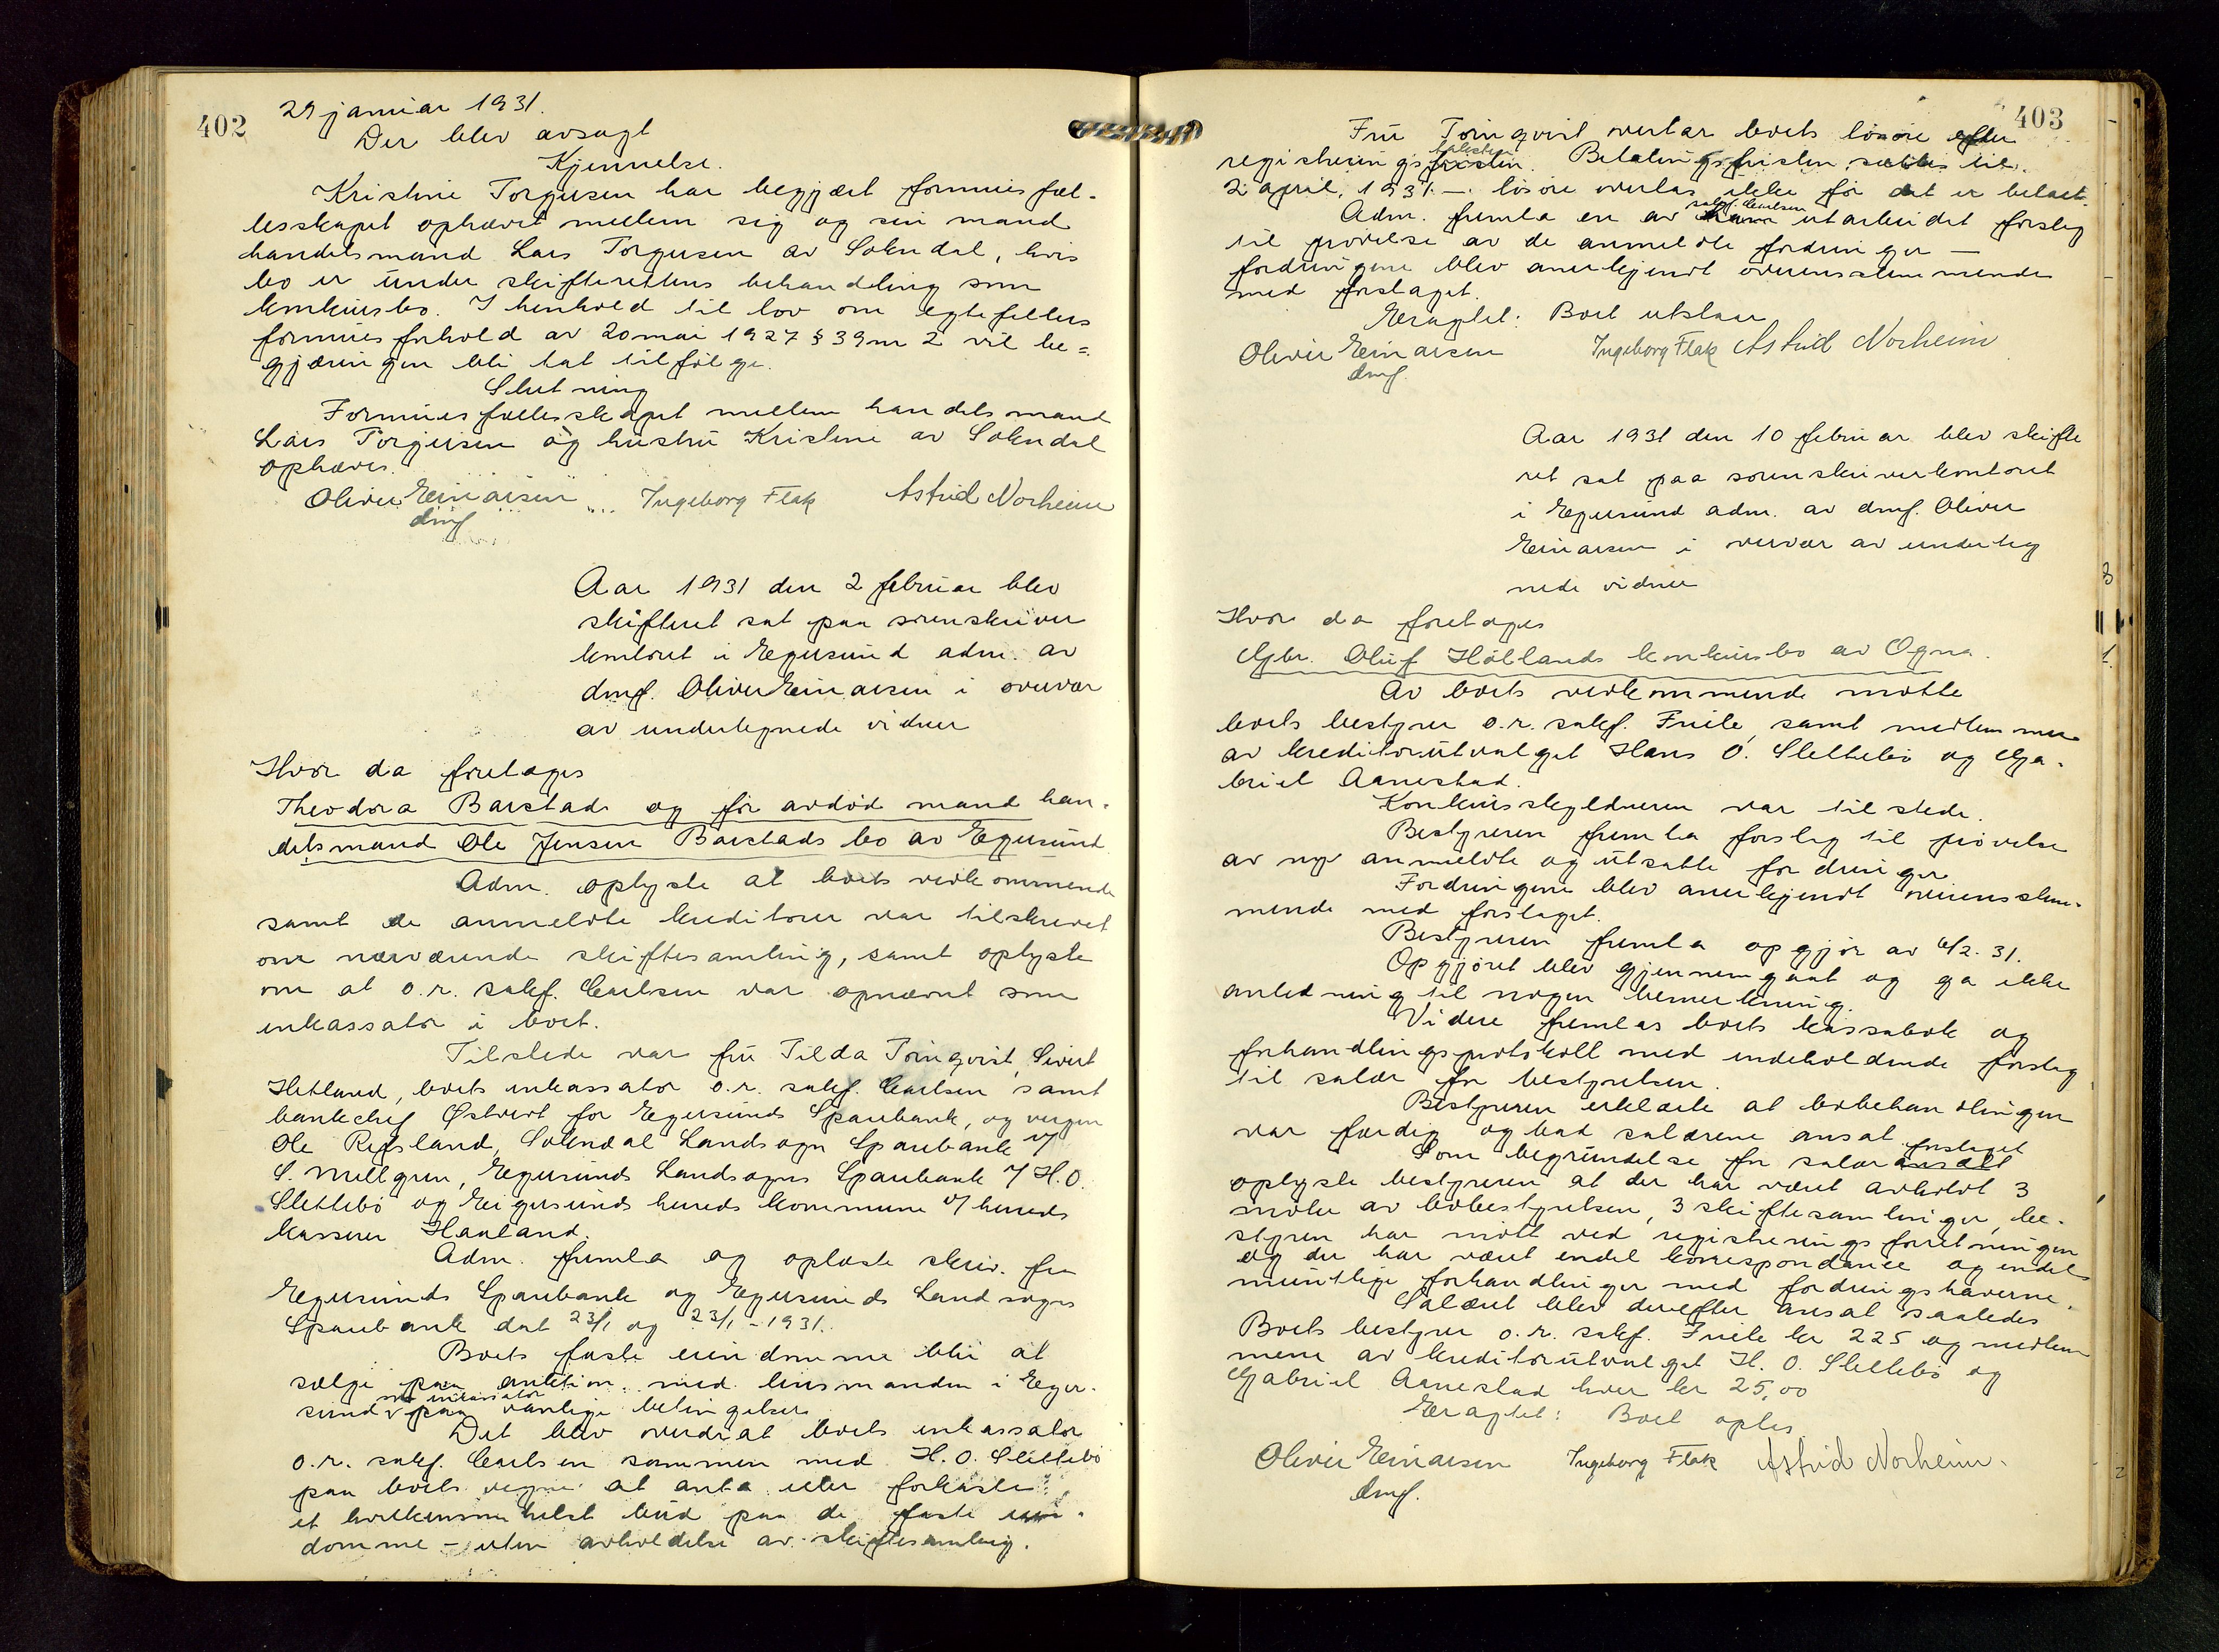 402
29 januar 1931.
Der blev avsagt
Kjennelse.
Kristine Torgersen har begjært formuesfæl-
lesskapet ophævet mellem sig og sin mand
handelsmand Lars Torgersen av Sokndal, hvis
bo er under skifterettens behandling som
konkursbo. I henhold til lov om egtefellers
formuesforhold av 20 mai 1927 § 39 nr 2 vil be-
gjæringen bli tat tilfølge.
Slutning
Formuesfællesskapet mellem handelsmand
Lars Torgersen og hustru Kristine av Sokndal
ophæves.
Oliver Einarsen Ingeborg Flak Astrid Norheim
dmf.
Aar 1931 den 2 februar blev
skifteret sat paa sorenskriver
kontoret i Egersund adm. av
dmf. Oliver Einarsen i overvær
av undertegnede vidner
Hvor da foretoges
Theodora Barstads og før avdød mand han-
delsmand Ole Jensen Barstads bo av Egersund
Adm. oplyste at boets vedkommende
samt de anmeldte kreditorer var tilskrevet
om nærværende skiftesamling, samt oplyste
om at o.r. sakf. Carlsen var opnævnt som
inkassator i boet.
Tilstede var fru Tilda Törnqvist, Sivert
Hetland, boets inkassator o.r. sakf. Carlsen samt
bankchef Østvert for Egersunds Sparebank, og vergen
Ole Refsland, Sokndal Landsogn Sparebank v/
S. Mellgren, Egersunds Landsogns Sparebank v/ H. O.
Slettebö og Eigersunds hereds kommune v/ hereds
kasserer Haaland.
Adm. fremla og oplæste skriv. fra
Egersunds Sparebank og Egersunds Landsogns
Sparebank dat 23/1 og 23/1 - 1931.
Boets faste eiendomme blir at
sælge paa auktion med lensmanden i Eger-
som inkassator
sund v paa vanlige betingelser.
Det blev overdrat boets inkassator
o.r. sakf. Carlsen sammen med H. O. Slettebö
paa boets vegne at anta eller forkaste
et hvilkensomhelst bud paa de faste eien-
domme - uten avholdelse av skiftesamling.
403
Fru Törnqvist overtar boets lösöre efter
taksten
registreringsfristen. Betalingsfristen sættes til
2 april, 1931. -. lösöre overlas ikke för det er betalt.
sakf. Carlsen
Adm. fremla en av ham utarbeidet forslag
til prövelse av de anmeldte fordringer -
fordringene blev anerkjendt overensstemmende
med forslaget.
Eragtet: Boet utstaar
Oliver Einarsen Ingeborg Flak Astrid Norheim
dmf.
Aar 1931 den 10 februar blev skifte
ret sat paa sorenskriverkontoret
i Egersund adm. av dmf. Oliver
Einarsen i overvær av underteg
nede vidner
Hvor da foretoges
Gbr. Oluf Höllands konkursbo av Ogna.
Av boets vedkommende mötte
boets bestyrer o.r. sakf. Fuile, samt medlemmer
av kreditorutvalget Hans O. Slettebö og Ga-
briel Aanestad.
Konkursskyldneren var tilstede.
Bestyreren fremla forslag til prövelse
av nye anmeldte og utsatte fordringer
Fordringene blev anerkjendt overensstem-
mende med forslaget.
Bestyreren fremla opgjör av 6/2. 31.
Opgjöret blev gjennemgaat og ga ikke
anledning til nogen bemerkning.
Videre fremlas boets kassabok og
forhandlingsprotokoll med indeholdende forslag
til salær for bestyrelsen.
Bestyreren erklærte at bobehandlingen
var færdig og bad salærene ansat.
forslaget
Som begrundelse for salær ansatt
oplyste bestyreren at der har været avholdt 3
möter av bobestyrelsen, 3 skiftesamlinger, be-
styreren har mött ved registreringsforretningen
og der har været endel korrespondance og endel
muntlige forhandlinger med fordringshaverne.
Salæret blev derefter ansat saaledes
Boets bestyrer o.r. sakf. Fuile kr 225 og medlem
mene av kreditorutvalget H. O. Slettebö og
Gabriel Aanestad hver kr 25,00
Eragtet: Boet opløs
Oliver Einarsen Ingeborg Flak Astrid Norheim.
dmf.